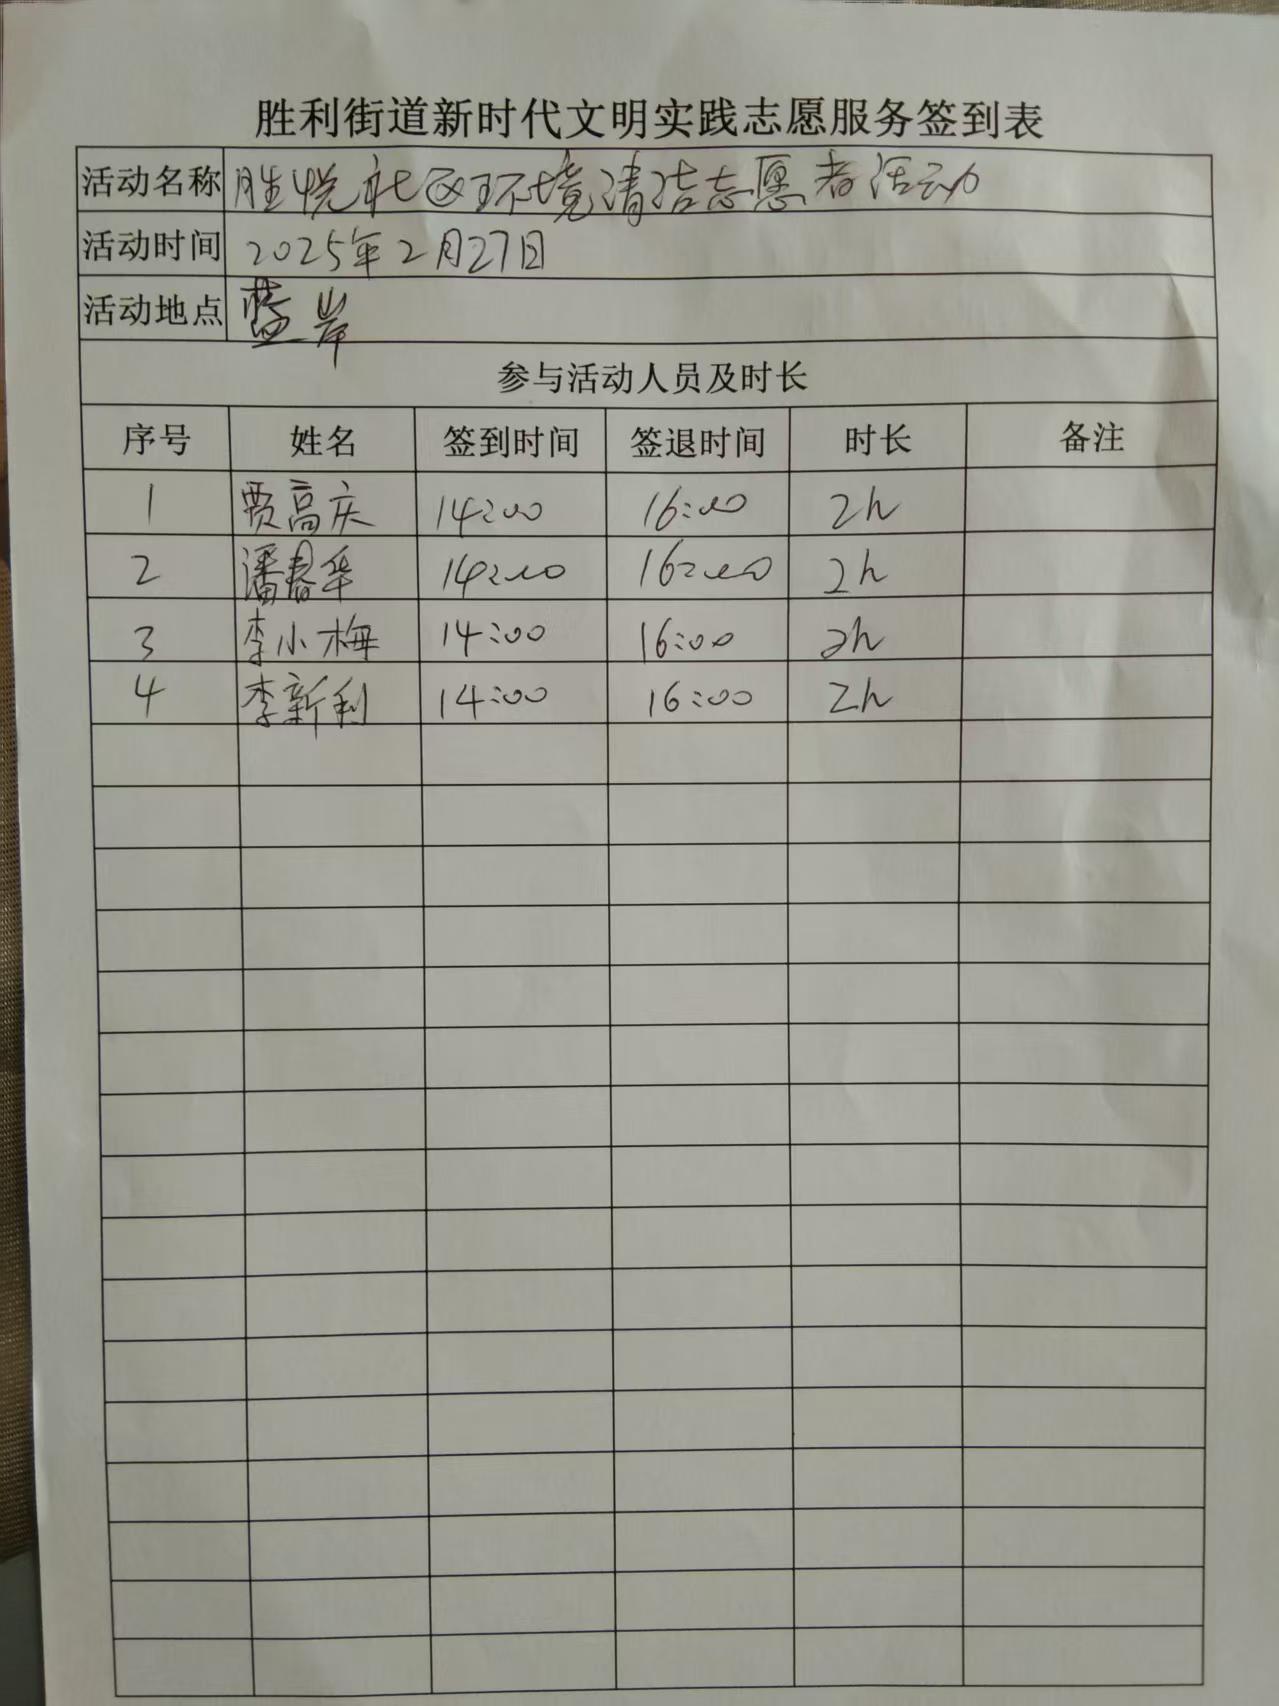 胜利街道新时代文明实践志愿服务签到表
活动名称 胜悦社区环境清洁志愿者活动
活动时间 2025年2月27日
活动地点 蓝岸
参与活动人员及时长
序号 姓名 签到时间 签退时间 时长 备注
1 贾高庆 14:00 16:00 2h
2 潘春华 14:00 16:00 2h
3 李小梅 14:00 16:00 2h
4 李新利 14:00 16:00 2h